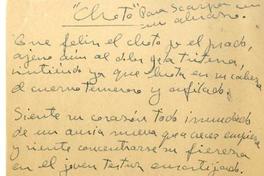 "Choto" Para Scarpa con
un abrazo.
Que feliz el choto por el prado,
ajeno aún al dolor y a la tristeza,
sintiendo ya que brota en su cabeza
el cuerno temeroso y afilado.
Siente su corazón todo inundado
de un ansia nueva que a crecer empieza
y siente concentrarse su fiereza
en el joven testuz ensortijado.